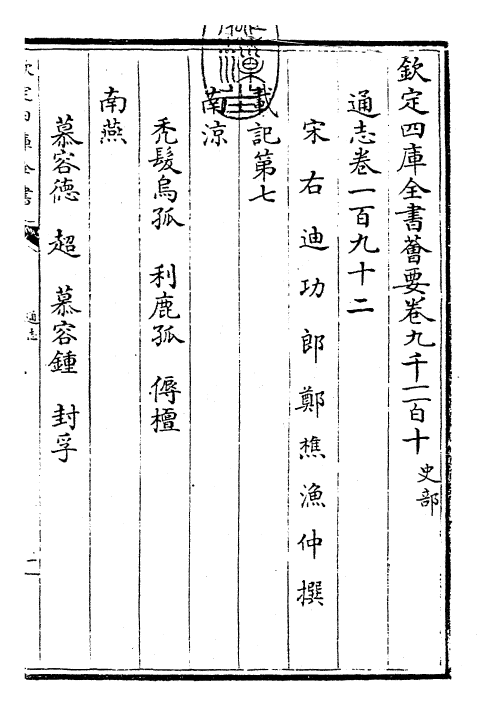 欽定四庫全書薈要卷九千二百十 史部
通志卷一百九十二
宋右迪功郎鄭樵漁仲撰
載記第七
南涼
禿髮烏孤 利鹿孤 傉檀
南燕
慕容德 超 慕容鍾 封孚
欽定四庫全書
通志